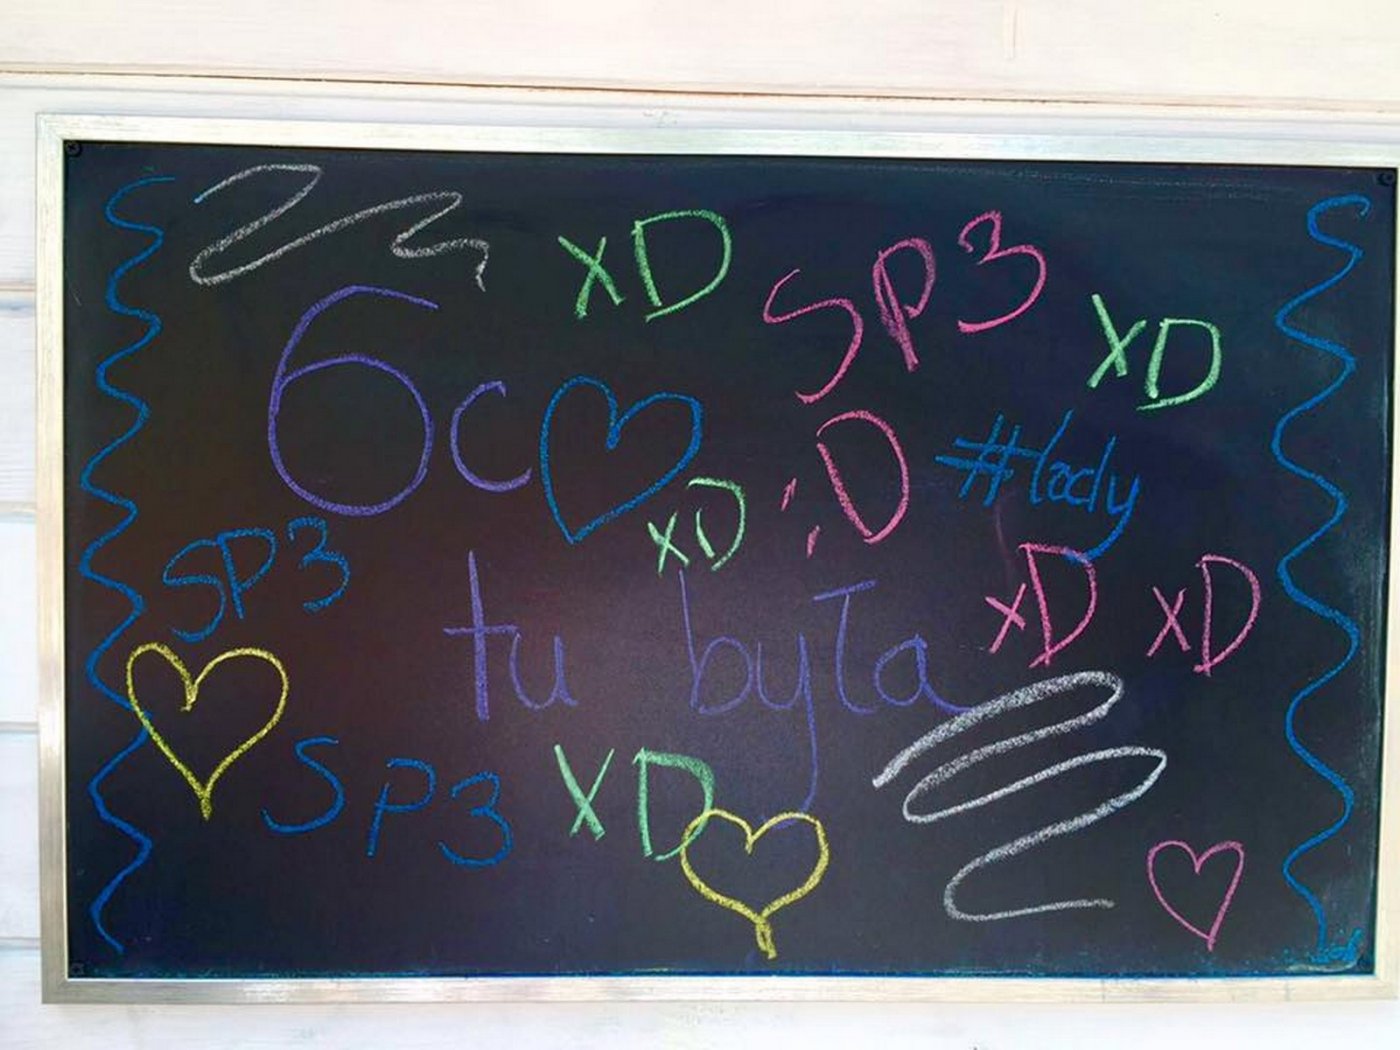 xD SP3
xD
6c :D #lody
xD
SP3 xD xD
tu była
SP3 xD